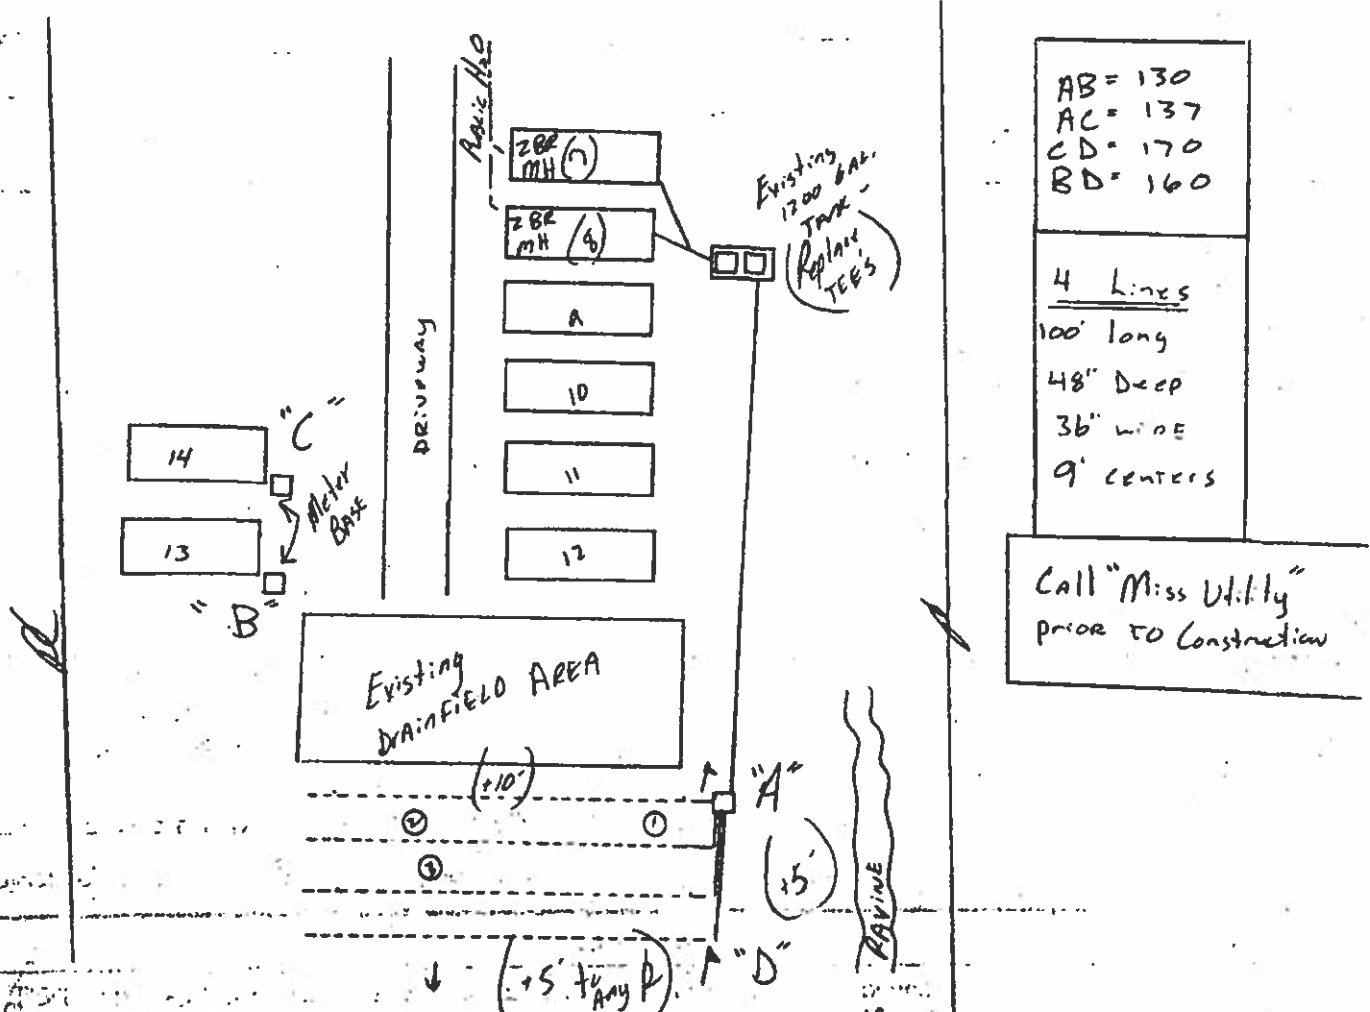 Public H2O
2 BR
MH (7)
2 BR
MH (8)
9
10
11
12
DRIVEWAY
Existing
1200 GAL.
TANK -
(Replace
TEE'S)
14
"C"
Meter
BASE
13
"B"
Existing
DRAINFIELD AREA
(+10')
"A"
2
1
3
(+5')
RAVINE
"D"
(+5' to
Any P)
AB = 130
AC = 137
CD = 170
BD = 160
4 Lines
100' long
48" Deep
36" wide
9' centers
Call "Miss Utility"
prior to Construction